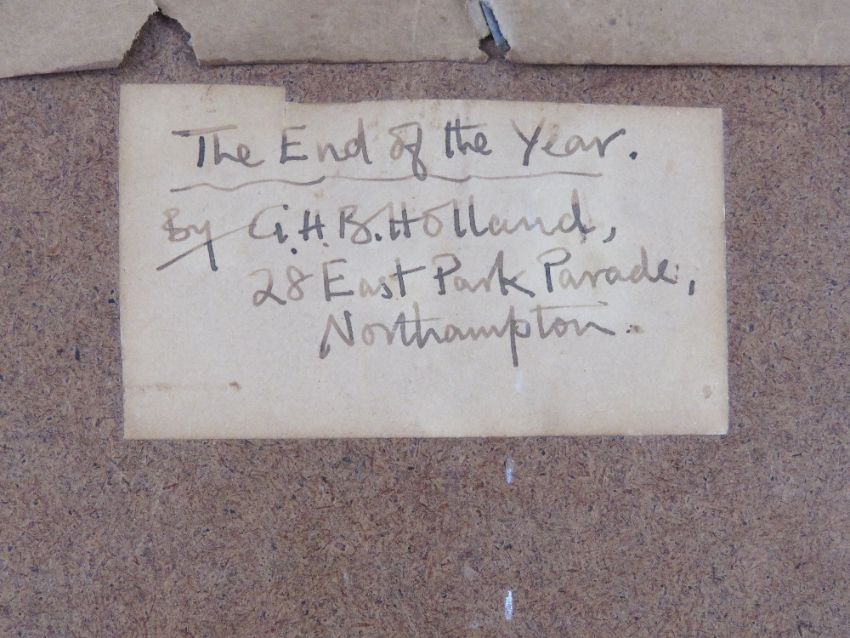 The End of the Year.
By G.H.B. Holland,
28 East Park Parade,
Northampton.